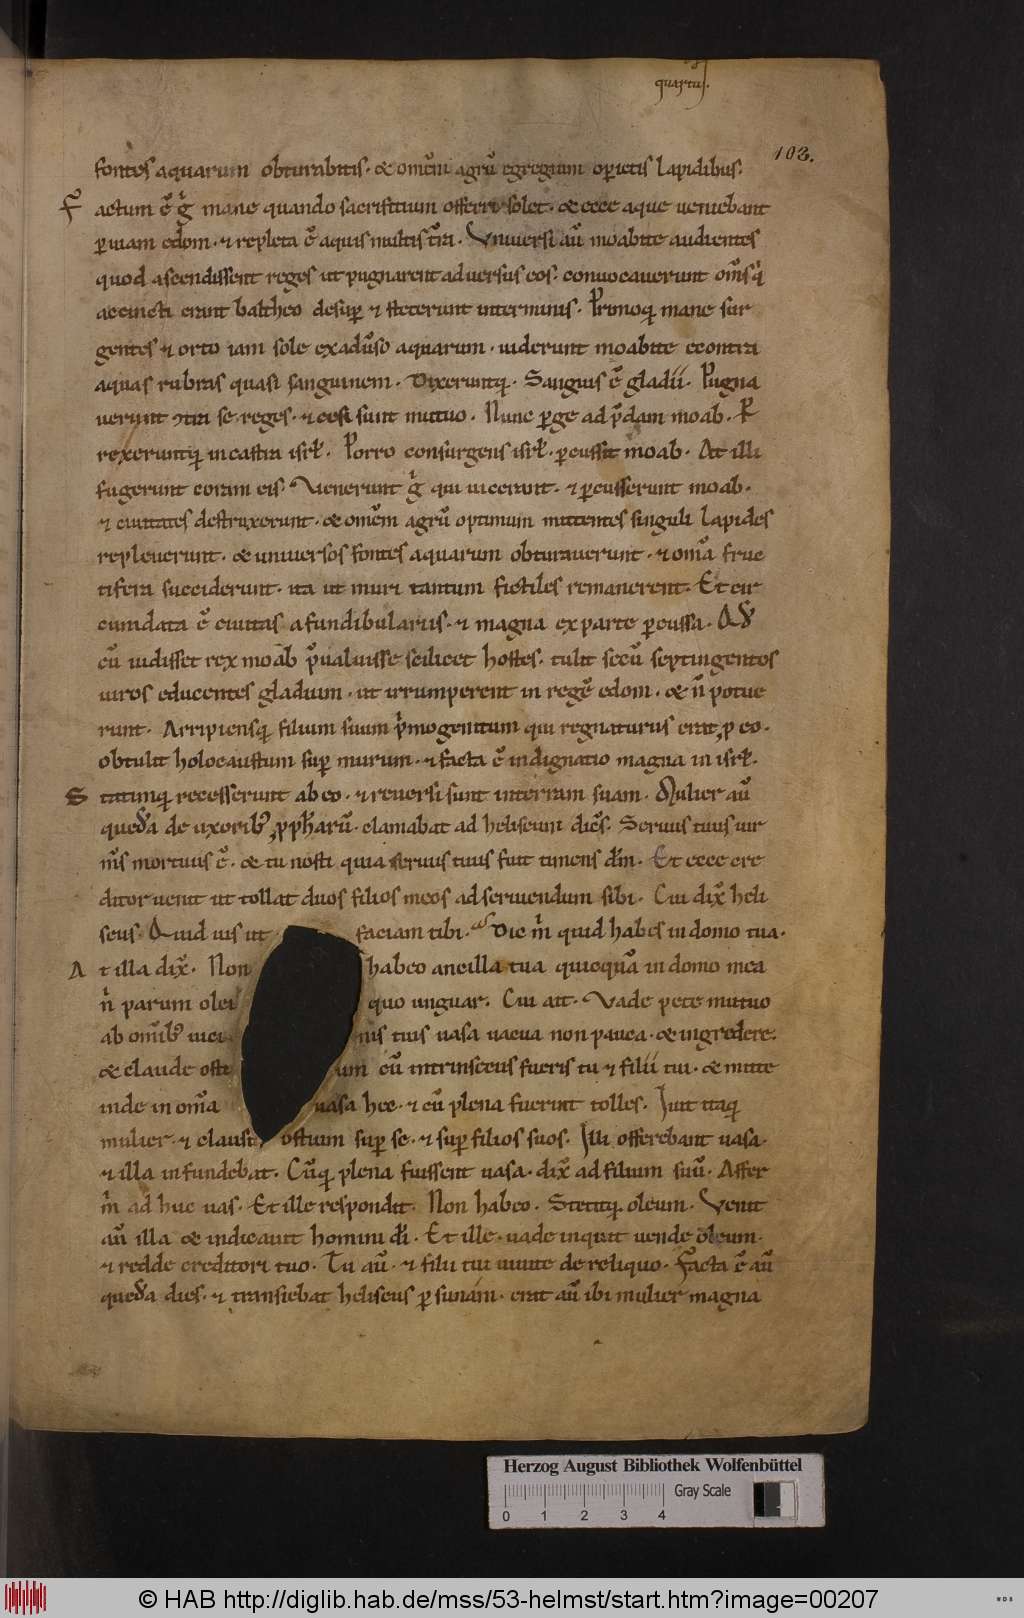 quartus.
103.
fontes aquarum obturabitis. & om̄em agrū egregium op̄ietis lapidibus.
F̄actum ē g̊ mane quando sacrificium offerri solet. & ecce aque veniebant
p̱ uiam edom. ⁊ repleta ē aquis multis t̄ra. Vniuersi aū moabite audientes
quod ascendissent reges ut pugnarent aduersus eos. conuocauerunt om̄s q̍
accincti erant baltheo desup̱ ⁊ steterunt interminis. Primoq; mane sur
gentes ⁊ orto iam sole exadūso aquarum. uiderunt moabite econtra
aquas rubras quasi sanguinem. Dixeruntq;. Sanguis ē gladii. Pugna
uerunt ꝯtra se reges. ⁊ cesi sunt mutuo. Nunc p̱ge ad p̄dam moab. P̱
rexeruntq; incastra isrł. Porro consurgens isrł. p̱cussit moab. At illi
fugerunt coram eis. Venerunt g̊ qui uicerant. ⁊ p̱cusserunt moab.
⁊ ciuitates destruxerunt. & om̄em agrū optimum mittentes singuli lapides
repleuerunt. & uniuersos fontes aquarum obturauerunt. ⁊ om̄a fruc
tifera succiderunt. ita ut muri tantum fictiles remanerent. Et cir
cumdata ē ciuitas afundibulariis. ⁊ magna ex parte p̱cussa. Qđ
cū uidisset rex moab p̄ualuisse scilicet hostes. tulit secū septingentos
uiros educentes gladium. ut irrumperent in regē edom. & n̄ potue
runt. Arripiensq; filium suum p̍mogenitum qui regnaturus erat p̱ eo.
obtulit holocaustum sup̱ murum. ⁊ facta ē indignatio magna in isrł.
Statimq; recesserunt ab eo. ⁊ reuersi sunt interram suam. Mulier aū
queđa de uxorib; p̱pharū. clamabat ad heliseum dic̄s. Seruus tuus uir
m̄s mortuus ē. & tu nosti quia seruus tuus fuit timens dm̄. Et ecce cre
ditor uenit ut tollat duos filios meos ad seruiendum sibi. Cui dix̄ heli
seus. Quid uis ut faciam tibi. Dic m̍ quid habes in domo tua.
At illa dix̄. Non habeo ancilla tua quicquā in domo mea
n̍ parum olei quo unguar. Cui ait. Vade pete mutuo
ab om̄ib; uicinis tuis uasa uacua non pauca. & ingredere.
& claude ostium cū intrinsecus fueris tu ⁊ filii tui. & mitte
inde in om̄a uasa hec. ⁊ cū plena fuerint tolles. Iuit itaq;
mulier. ⁊ clausit ostium sup̱ se. ⁊ sup̱ filios suos. Illi offerebant uasa.
⁊ illa infundebat. Cūq; plena fuissent uasa. dix̄ ad filium suū. Affer
m̍ ad huc uas. Et ille respondit. Non habeo. Stetitq; oleum. Venit
aū illa & indicauit homini dī. Et ille. uade inquit uende oleum.
⁊ redde creditori tuo. Tu aū. ⁊ filii tui uiuite de reliquo. Facta ē aū
queđa dies. ⁊ transiebat heliseus p̱ sunam. erat aū ibi mulier magna
Herzog August Bibliothek Wolfenbüttel
0 1 2 3 4 Gray Scale
© HAB http://diglib.hab.de/mss/53-helmst/start.htm?image=00207